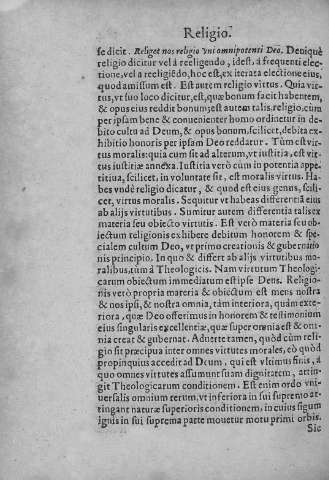 Religio.
se dicit. Religet nos religio vni omnipotenti Deo. Deniquè
religio dicitur vel à reeligendo, idest, à frequenti elec-
tione, vel à reeligēdo, hoc est, ex iterata electione eius,
quod amissum est. Est autem religio virtus. Quia vir-
tus, vt suo loco dicitur, est, quæ bonum facit habentem,
& opus eius reddit bonum; est autem talis, religio, cùm
per ipsam bene & conuenienter homo ordinetur in de-
bito cultu ad Deum, & opus bonum, scilicet, debita ex-
hibitio honoris per ipsam Deo reddatur. Tùm est vir-
tus moralis: quia cum sit ad alterum, vt iustitia, est vir-
tus iustitiæ annexa. Iustitia verò cùm in potentia appe-
titiua, scilicet, in voluntate sit, est moralis virtus. Ha-
bes vndè religio dicatur, & quod est eius genus, scili-
cet, virtus moralis. Sequitur vt habeas differentiā eius
ab alijs virtutibus. Sumitur autem differentia talis ex
materia seu obiecto virtutis. Est verò materia seu ob-
iectum religionis exhibere debitum honorem & spe-
cialem cultum Deo, vt primo creationis & gubernatio
nis principio. In quo & differt ab alijs virtutibus mo-
ralibus, tùm à Theologicis. Nam virtutum Theologi-
carum obiectum immediatum est ipse Deus. Religio-
nis verò propria materia & obiectum est mens nostra
& nos ipsi, & nostra omnia, tàm interiora, quàm exte-
riora, quæ Deo offerimus in honorem & testimonium
eius singularis excellentiæ, quæ super omnia est & om-
nia creat & gubernat. Aduerte tamen, quòd cùm reli-
gio sit præcipua inter omnes virtutes morales, eò quòd
propinquius accedit ad Deum, qui est vltimus finis, à
quo omnes virtutes assumunt suam dignitatem, attin-
git Theologicarum conditionem. Est enim ordo vni-
uersalis omnium rerum, vt inferiora in sui supremo at-
tingant naturæ superioris conditionem, in cuius signum
ignis in sui suprema parte mouetur motu primi orbis.
Sic